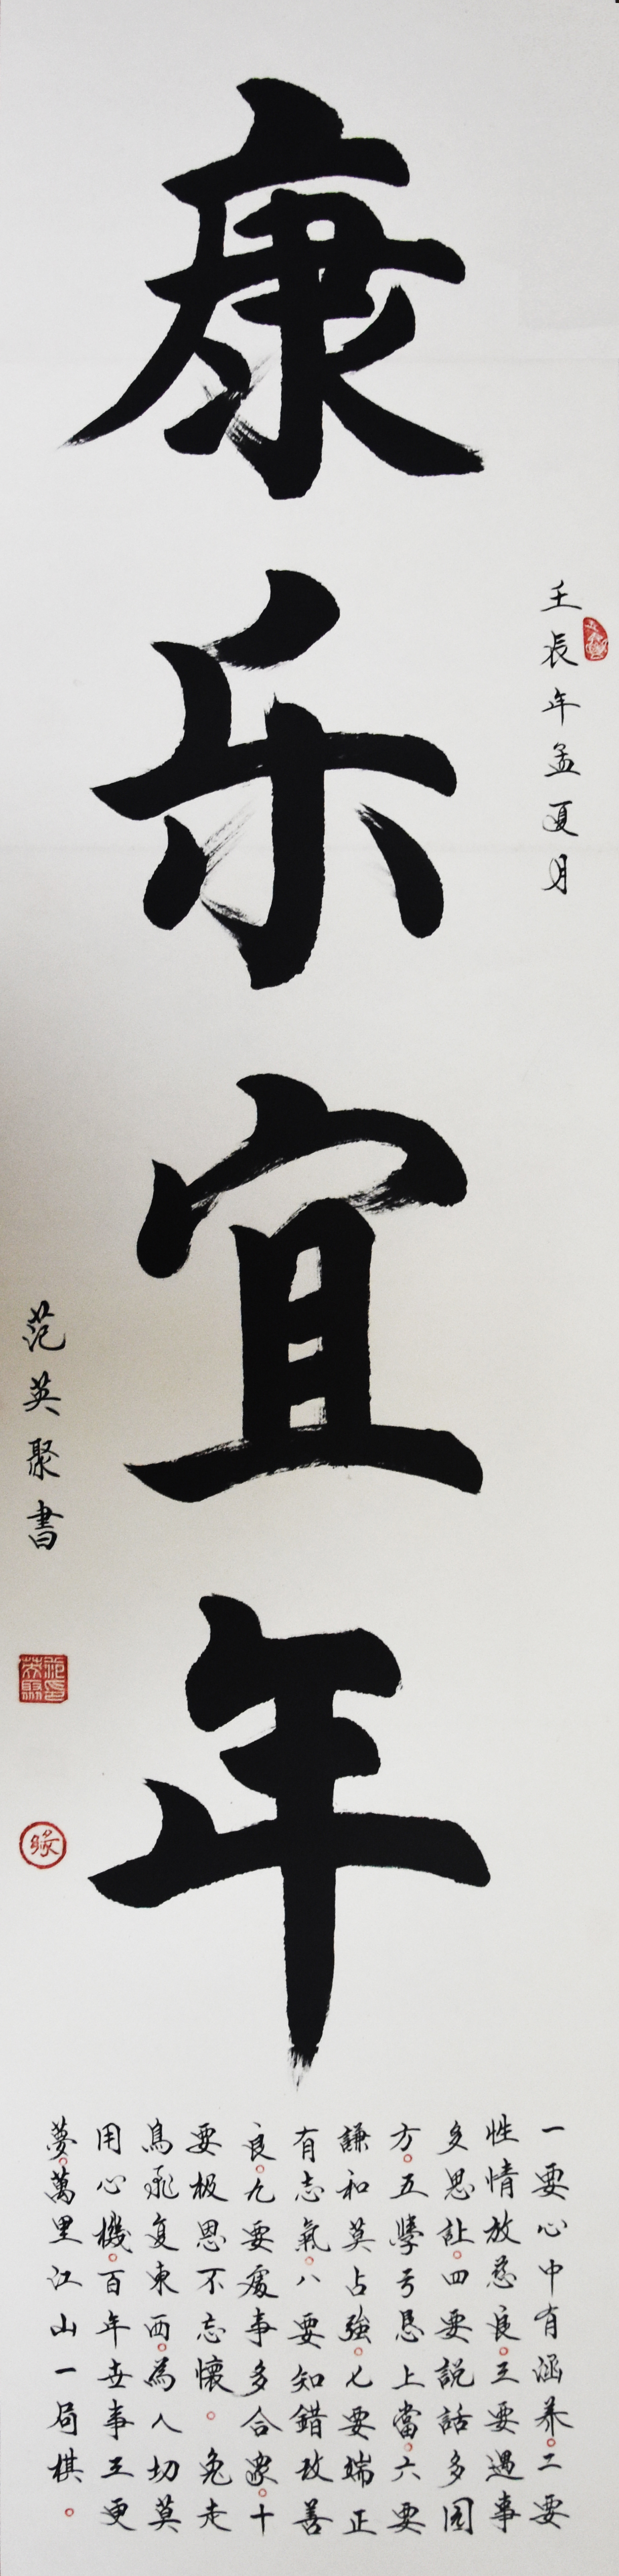 壬辰年孟夏月
康乐宜年
范英聚書
范英聚印
缘
一要心中有涵养。二要
性情放慈良。三要遇事
多思。四要説話多圆
方。五學亏恳上當。六要
謙和莫占強。七要端正
有志氣。八要知錯改善
良。九要處事多合。十
要极恩不忘懷。兔走
鳥飛复東西。為人切莫
用心機。百年世事三更
夢。萬里江山一局棋。